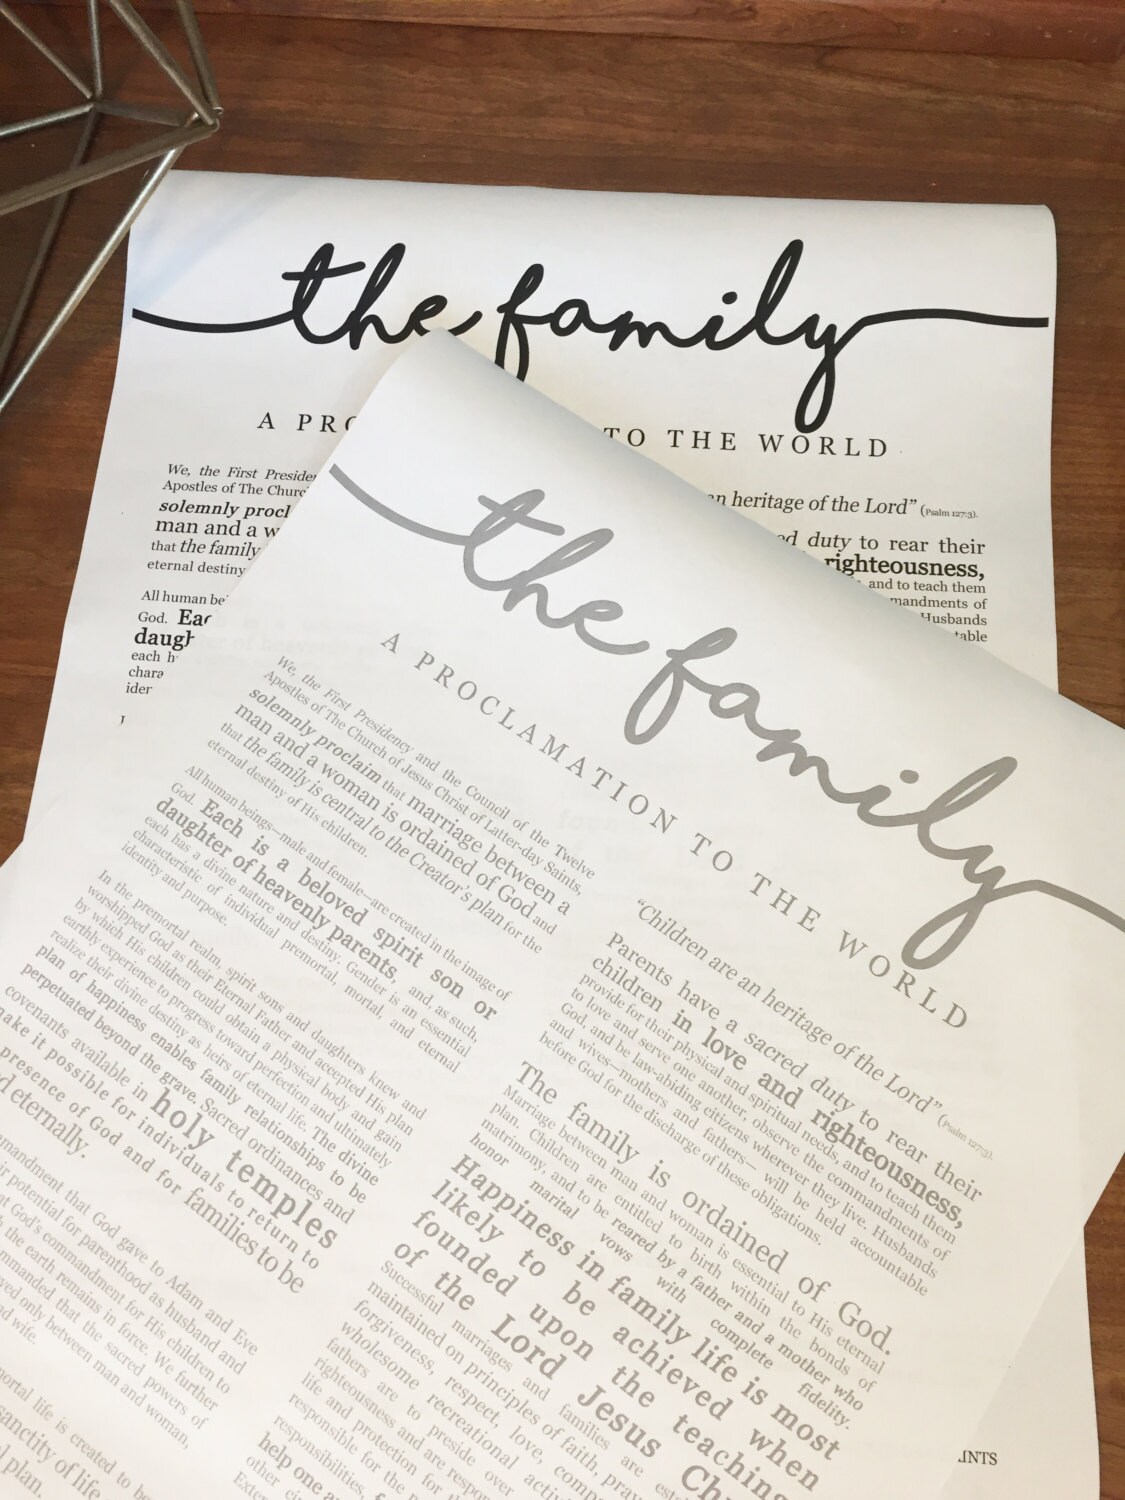 the family
A PRO TO THE WORLD
We, the First
Apostles of The
solemnly
man and a
that the family
eternal destiny
All human
God.
each
an heritage of the Lord” (Psalm 127:3).
duty to rear their
righteousness,
and to teach them
of
Husbands
the family
A PROCLAMATION TO THE WORLD
We, the First Presidency and the Council of the Twelve
Apostles of The Church of Jesus Christ of Latter-day Saints,
solemnly proclaim that marriage between a
man and a woman is ordained of God and
that the family is central to the Creator’s plan for the
eternal destiny of His children.
All human beings—male and female—are created in the image of
God. Each is a beloved spirit son or
daughter of heavenly parents, and, as such,
each has a divine nature and destiny. Gender is an essential
characteristic of individual premortal, mortal, and eternal
identity and purpose.
In the premortal realm, spirit sons and daughters knew and
worshipped God as their Eternal Father and accepted His plan
by which His children could obtain a physical body and gain
earthly experience to progress toward perfection and ultimately
realize their divine destiny as heirs of eternal life. The divine
plan of happiness enables family relationships to be
perpetuated beyond the grave. Sacred ordinances and
covenants available in holy temples
make it possible for individuals to return to
presence of God and for families to be
eternally.
that God gave to Adam and Eve
potential for parenthood as husband and
God’s commandment for His children to
the earth remains in force. We further
that the sacred powers of
only between man and woman,
wife.
life is created to be
sanctity of life
plan.
“Children are an heritage of the Lord” (Psalm 127:3).
Parents have a sacred duty to rear their
children in love and righteousness,
provide for their physical and spiritual needs, and to teach them
to love and serve one another, observe the commandments of
God, and be law-abiding citizens wherever they live. Husbands
and wives—mothers and fathers—will be held accountable
before God for the discharge of these obligations.
The family is ordained of God.
Marriage between man and woman is essential to His eternal
plan. Children are entitled to birth within the bonds of
matrimony, and to be reared by a father and a mother who
honor marital vows with complete fidelity.
Happiness in family life is most
likely to be achieved when
founded upon the
of the Lord Jesus
Successful marriages and families are
maintained on principles of faith,
forgiveness, respect, love,
wholesome recreational
fathers are to preside over
righteousness and are
life and protection for
responsible for the
responsibilities,
help one
other